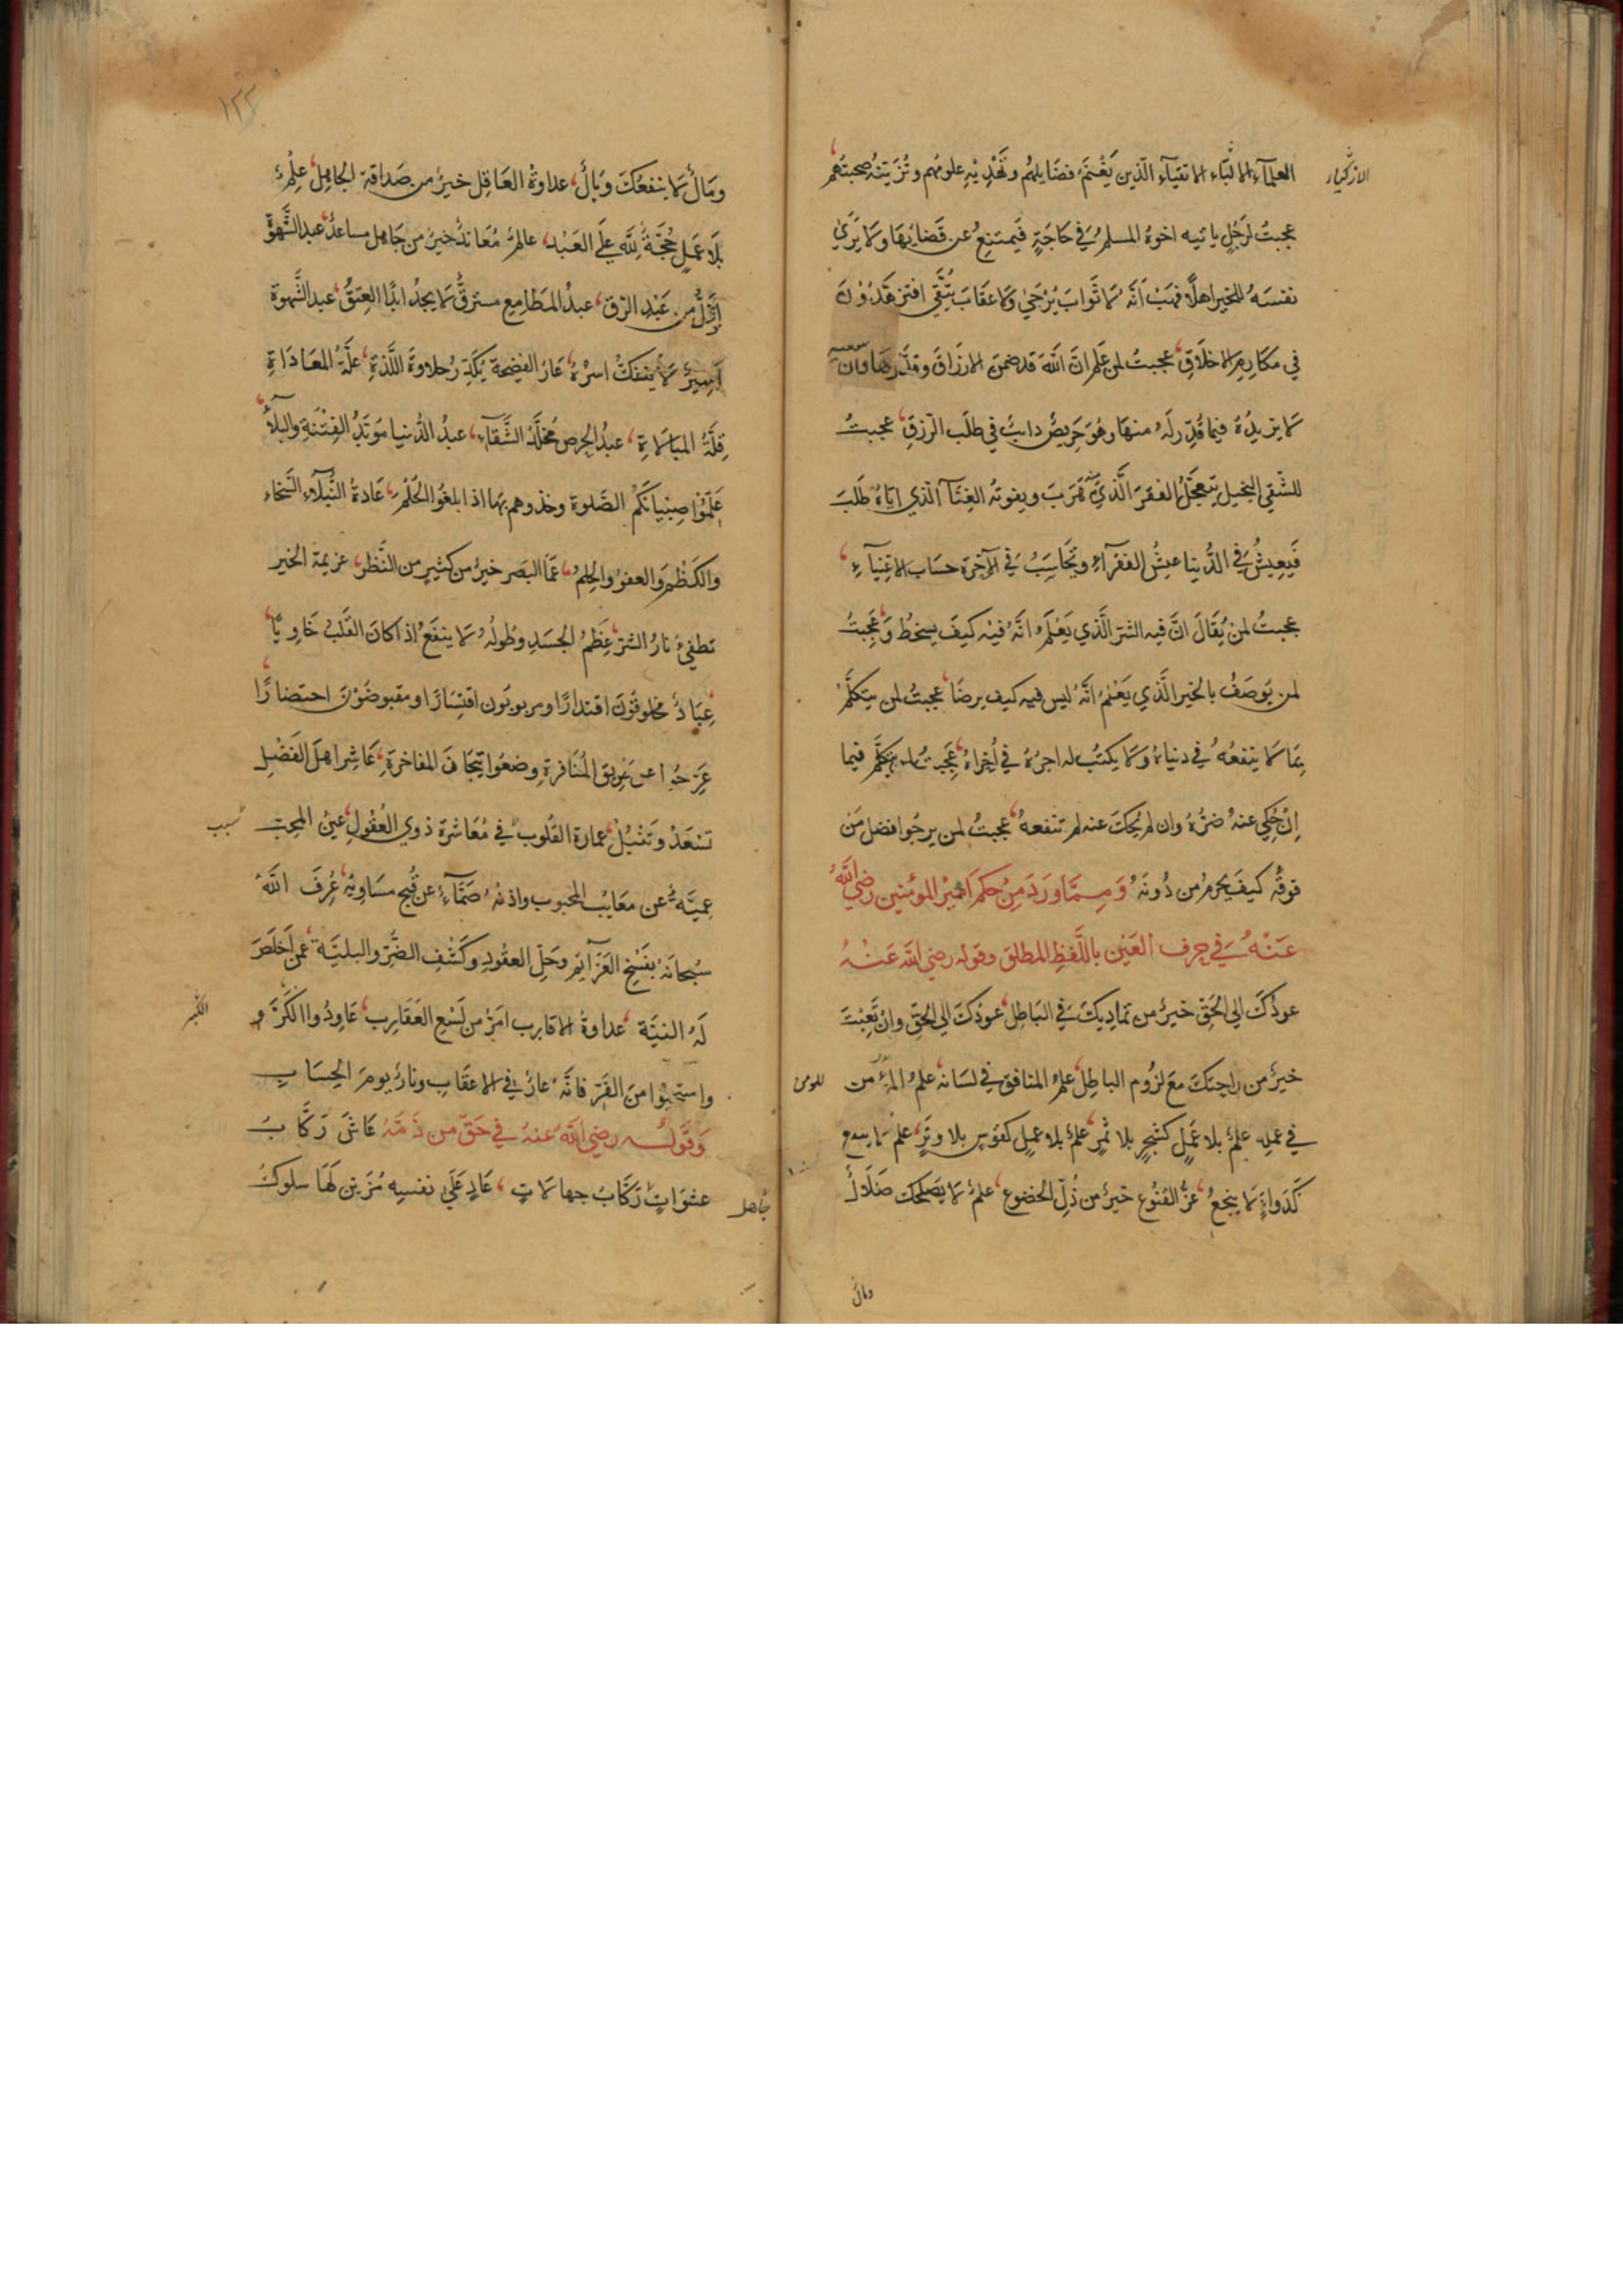 العلمآء الالبّاء الاتقيآء الّذين يَغْتنمُ فضَايلهُم وتَهْدِيْهِ علومُهم وتُزَيّنُهُ صحبتُهم،
الازكياء
عجبتُ لرَجُلٍ ياتيه اخوهُ المسلمُ في حَاجَةٍ فَيمتنِعُ عن قَضايِهَا وَلا يَرَىٰ
نفسَهُ للخير اهلًا فهَبْ اَنَّهُ لا ثَوابَ يُرْجَىٰ وَلا عقَابَ يُتَّقى افتزهَدُوْنَ
في مكَارِمِ الاخلَاقِ، عجبتُ لمن عَلم انَّ اللّهَ قد ضمنَ الارزاقَ وقدَّرهَا وان سعيه
لا يزيدُهُ فيما قُدِّرَ لَهُ منهَا وهُوَ حَريصٌ دائبٌ في طلَب الرّزقِ، عجبتُ
للشَّقِي البَخيل يتعجّلُ الفقرَ الَّذي منه هَرَبَ ويفوتُه الغِنَآ الّذي ايّاهُ طَلَبَ
فَيَعِيشُ في الدُّنيا عيشَ الفقرآءِ ويُحَاسَبُ في الآخرَة حسَاب الاغنيآءِ،
عجبتُ لمنْ يُقَالَ انَّ فيه الشرّ الَّذي يَعْلَمُ انَّهُ فيْه كيفَ يسخطُ، وَعَجِبتُ
لمن يوصَفُ بالخير الَّذي يَعْلمُ انَّهُ ليس فيه كيف يرضَا، عجبتُ لمن يتكلَّمُ
بمَا لا ينفعُهُ في دنياهُ وَلا يكتبُ له اجرُهُ في اُخراهُ، عَجِبتُ لمن يتكلَّم فيما
اِنْ حُكِي عنهُ ضرَّهُ وان لم يُحكَ عنه لم تنفعهُ، عجبتُ لمن يرجُوا فضل مَن
فوقَهُ كيفَ يحرمُ من دُونَهُ وَمِمَّا وَرَدَ مِنْ حِكَمِ اَمِيْرِ المؤمنين رَضِيَ اللّهُ
عَنْهُ في حرف العَيْن باللّفظِ المطلق وقوله رضي اللّه عَنْهُ
عودُكَ الى الحَقّ خيرٌ من تماديكَ في البَاطِل، عودُكَ الى الحَقّ وانْ تَعِبْتَ
خيرٌ من راحتكَ مَعَ لزُوم الباطِل، علمُ المنافق في لسَانه، علمُ المؤمن
للمومن
في عمله، علمٌ بلا عمَلٍ كشجرٍ بلا ثمرٍ، علمٌ بلا عملٍ كقوسٍ بلا وترٍ، علم لا ينفع
كَدَواءٍ لا ينجعُ، عزُّ القنُوع خيرٌ من ذُلِّ الخضوع، علمٌ لا يصْلحكَ ضَلَالٌ
ومالٌ
١٢٢
ومَالٌ لا ينفعُكَ وَبَالٌ، عداوةُ العَاقِل خيرٌ من صَداقة الجَاهِل، عِلْمٌ
بلَا عَمَلٍ حُجَّةٌ للّه عَلَى العَبْد، عالمٌ مُعَاندٌ خيرٌ من جَاهل مساعدٌ، عبد الشَّهوَة
اَذَلُّ من عَبْدِ الرِّق، عبدُ المَطامِعِ مسترقٌّ لا يجدُ ابدًا العِتقُ، عبد الشَّهوة
اَسِيرٌ لا يَنفكُّ اسرُهُ، عَارُ الفضيحة يُكَدِّرُ حلاوةَ اللَّذةِ، علّةُ المعَادَاةِ
قِلَّةُ المبَالاةِ، عبدُ الحرصِ مُخلَّدُ الشَّقآءِ، عبدُ الدُّنيا مَوبَّدُ الفِتْنَةِ والبلآءُ،
عَلِّمُوْا صِبْيانَكُم الصّلوة وخذوهم بهَا اذا بلغوُا الحُلُمَ، عَادةُ النُّبلآء السّخاء
والكَظْم والعفوُ والحِلمُ، عَمَا البَصر خيرٌ من كثيرٍ من النَّظر، عزيمة الخير
تطفيُ نارُ الشرّ، عِظَمُ الجسَدِ وطُولُهُ لا ينفَعُ اذا كانَ القَلبُ خَاويًا،
عِبَادٌ مخلوقُونَ اقتدارًا ومربوبُون اقتِسَارًا ومقبوضُوْنَ احتضارًا،
عَرّجُوا عن طَرِيق المُنَافرَةِ وضعُوا تيجَانَ المفاخرَةِ، عَاشِر اهلَ الفَضْلِ
تسْعَدْ وَتَنْبُلْ، عمارة القُلوب في مُعَاشرَة ذوي العُقُولِ، عينُ المحِبّ
عميَّةٌ عن معَايب المحبوب واذنهُ صَمَّآءُ عن قُبح مسَاويهِ، عُرِفَ اللّهُ
سُبحانَهُ بفَسْخِ العَزَآئِم وحَلّ العقُودِ وكَشْفِ الضُّرّ والبليَّة عمَّن اَخلَصَ
لَهُ النيَّة، عداوةُ الاقارب امَرُّ من لَسْعِ العَقَارِب، عَاوِدُوا الكَرَّ و
واستحيُوا منَ الفَرّ فانَّهُ عارٌ في الاعقَابِ ونارٌ يومَ الحِسَابِ
وَقَوْلُه رضِيَ اللّهُ عنهُ في حَقّ من ذَمَّهُ عَاشَ رَكَّابُ
عشوَاتٍ رَكَّابُ جهالاتٍ، عَادٍ عَلَى نفسِهِ مُزَيِّن لَهَا سلوكَ
جاهل